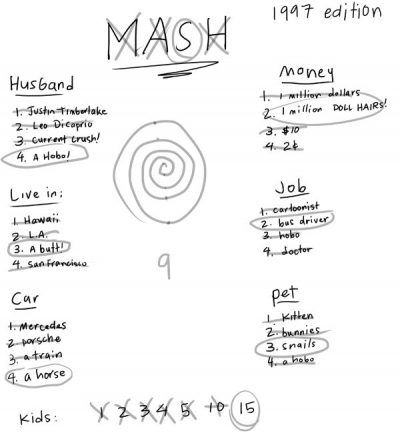 MASH
1997 edition
Husband
1. Justin Timberlake
2. Leo Dicaprio
3. Current crush!
4. A Hobo!
Live in:
1. Hawaii
2. L.A.
3. A butt!
4. San Francisco
Car
1. Mercedes
2. porsche
3. a train
4. a horse
Money
1. 1 million dollars
2. 1 million DOLL HAIRS!
3. $10
4. 2¢
Job
1. cartoonist
2. bus driver
3. hobo
4. doctor
pet
1. Kitten
2. bunnies
3. snails
4. a hobo
9
Kids: 1 2 3 4 5 10 15